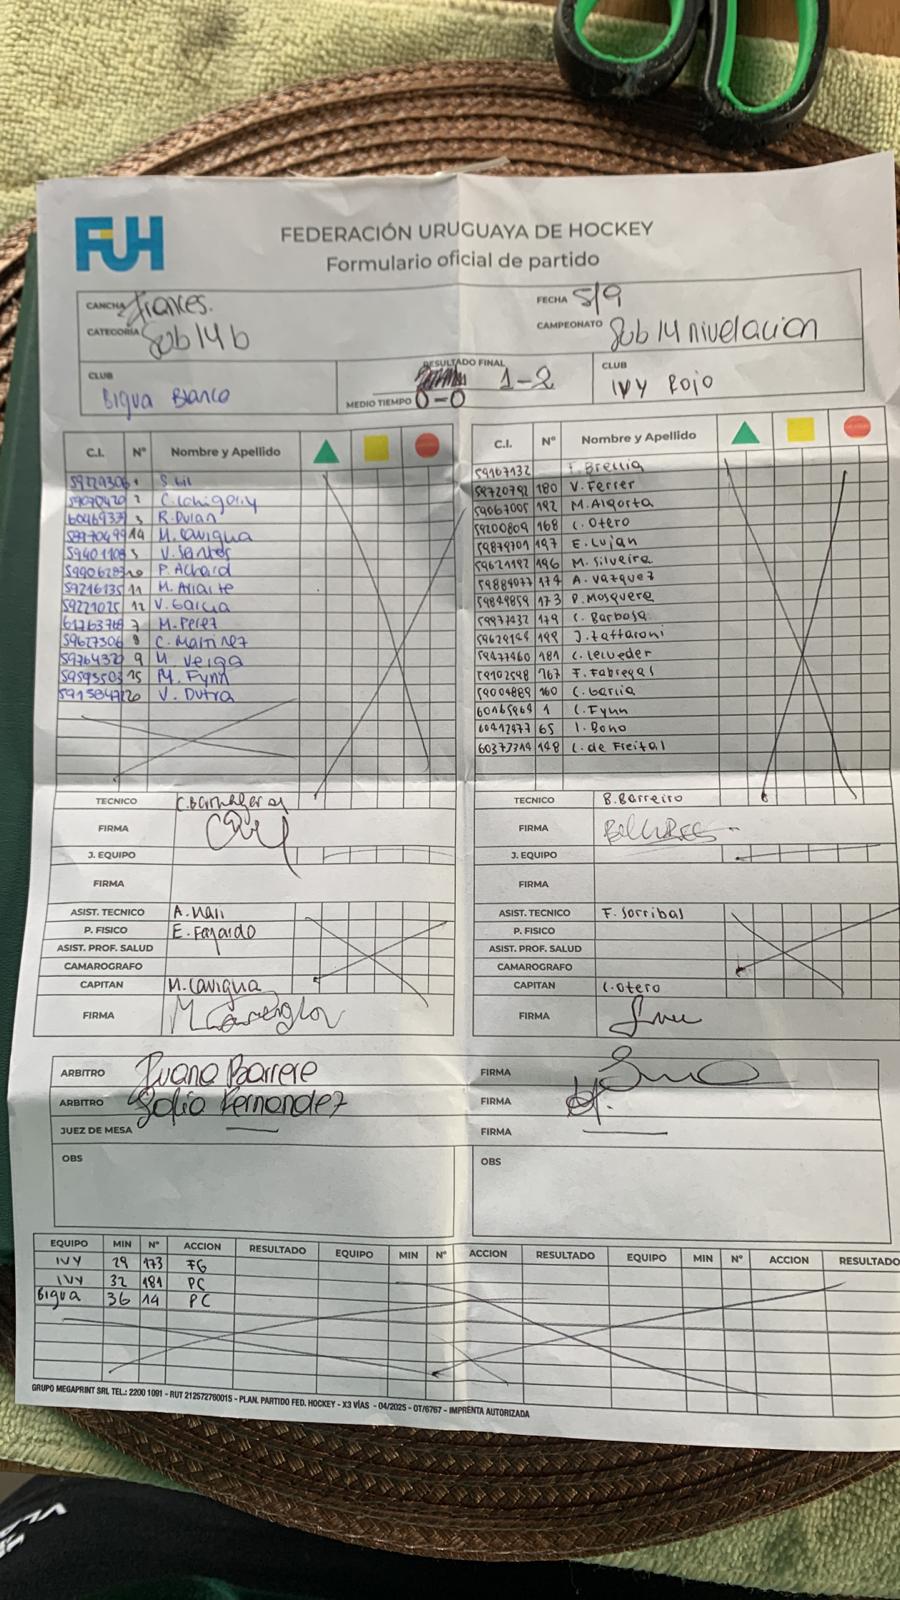 FUH
FEDERACIÓN URUGUAYA DE HOCKEY
Formulario oficial de partido
CANCHA
FECHA 5/9
CATEGORÍA Sub 14 b
CAMPEONATO Sub 14 nivelacion
CLUB Bigua Blanco
RESULTADO FINAL 1-2
MEDIO TIEMPO 0-0
CLUB IVY ROJO
C.I. Nº Nombre y Apellido
59229306 1 S. Gil
59070420 2
6046933 3 R. Duran
58970499 14 M. Cavigua
59401108 5 V. Santos
59906283 10 P. Achard
59216135 11 M. Ariarte
59221025 12 V. Garcia
61263768 7 M. Perez
59627306 8 C. Martinez
5976432 9 M. Verga
59595503 15 M. Fynn
5915847 20 V. Dutra
TECNICO
FIRMA
J. EQUIPO
FIRMA
ASIST. TECNICO A. Nari
P. FISICO E. Fajardo
ASIST. PROF. SALUD
CAMAROGRAFO
CAPITAN M. Cavigua
FIRMA
C.I. Nº Nombre y Apellido
59167132 F. Brescia
58720792 180 V. Ferrer
59067005 192 M. Algorta
59200809 168 C. Otero
59879701 197 E. Lujan
59621192 196 M. Silveira
59889077 174 A. Vazquez
59849859 173 P. Mosquera
59977432 179 C. Barbosa
59629144 199 J. Zaffaroni
59477460 181 C. Lerveder
59102598 167 F. Fabregas
59004889 160 C. Garcia
60165964 1 C. Fynn
60412977 65 I. Bono
60377314 148 C. de Freital
TECNICO B. Barreiro
FIRMA
J. EQUIPO
FIRMA
ASIST. TECNICO F. Sorribas
P. FISICO
ASIST. PROF. SALUD
CAMAROGRAFO
CAPITAN C. Otero
FIRMA
ARBITRO Juana Barrere FIRMA
ARBITRO Sofia Fernandez FIRMA
JUEZ DE MESA FIRMA
OBS
OBS
EQUIPO MIN Nº ACCION RESULTADO EQUIPO MIN Nº ACCION RESULTADO EQUIPO MIN Nº ACCION RESULTADO
IVY 29 173 FG
IVY 32 181 PC
Bigua 36 14 PC
GRUPO MEGAPRINT SRL TEL.: 2200 1091 - RUT 212572760015 - PLAN. PARTIDO FED. HOCKEY - X3 VÍAS - 04/2025 - OT/6767 - IMPRENTA AUTORIZADA